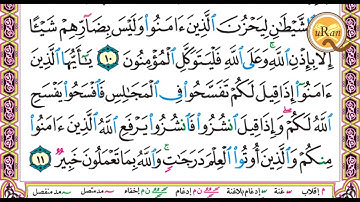 ٱلشَّيۡطَٰنِ لِيَحۡزُنَ ٱلَّذِينَ ءَامَنُواْ وَلَيۡسَ بِضَآرِّهِمۡ شَيۡـًٔا
إِلَّا بِإِذۡنِ ٱللَّهِۚ وَعَلَى ٱللَّهِ فَلۡيَتَوَكَّلِ ٱلۡمُؤۡمِنُونَ ١٠ يَٰٓأَيُّهَا ٱلَّذِينَ
ءَامَنُوٓاْ إِذَا قِيلَ لَكُمۡ تَفَسَّحُواْ فِي ٱلۡمَجَٰلِسِ فَٱفۡسَحُواْ يَفۡسَحِ
ٱللَّهُ لَكُمۡۖ وَإِذَا قِيلَ ٱنشُزُواْ فَٱنشُزُواْ يَرۡفَعِ ٱللَّهُ ٱلَّذِينَ ءَامَنُواْ
مِنكُمۡ وَٱلَّذِينَ أُوتُواْ ٱلۡعِلۡمَ دَرَجَٰتٖۚ وَٱللَّهُ بِمَا تَعۡمَلُونَ خَبِيرٞ ١١
م إقلاب غنة إدغام بلاغنة ن م إدغام ن م إخفاء مد متصل مد منفصل
uRan